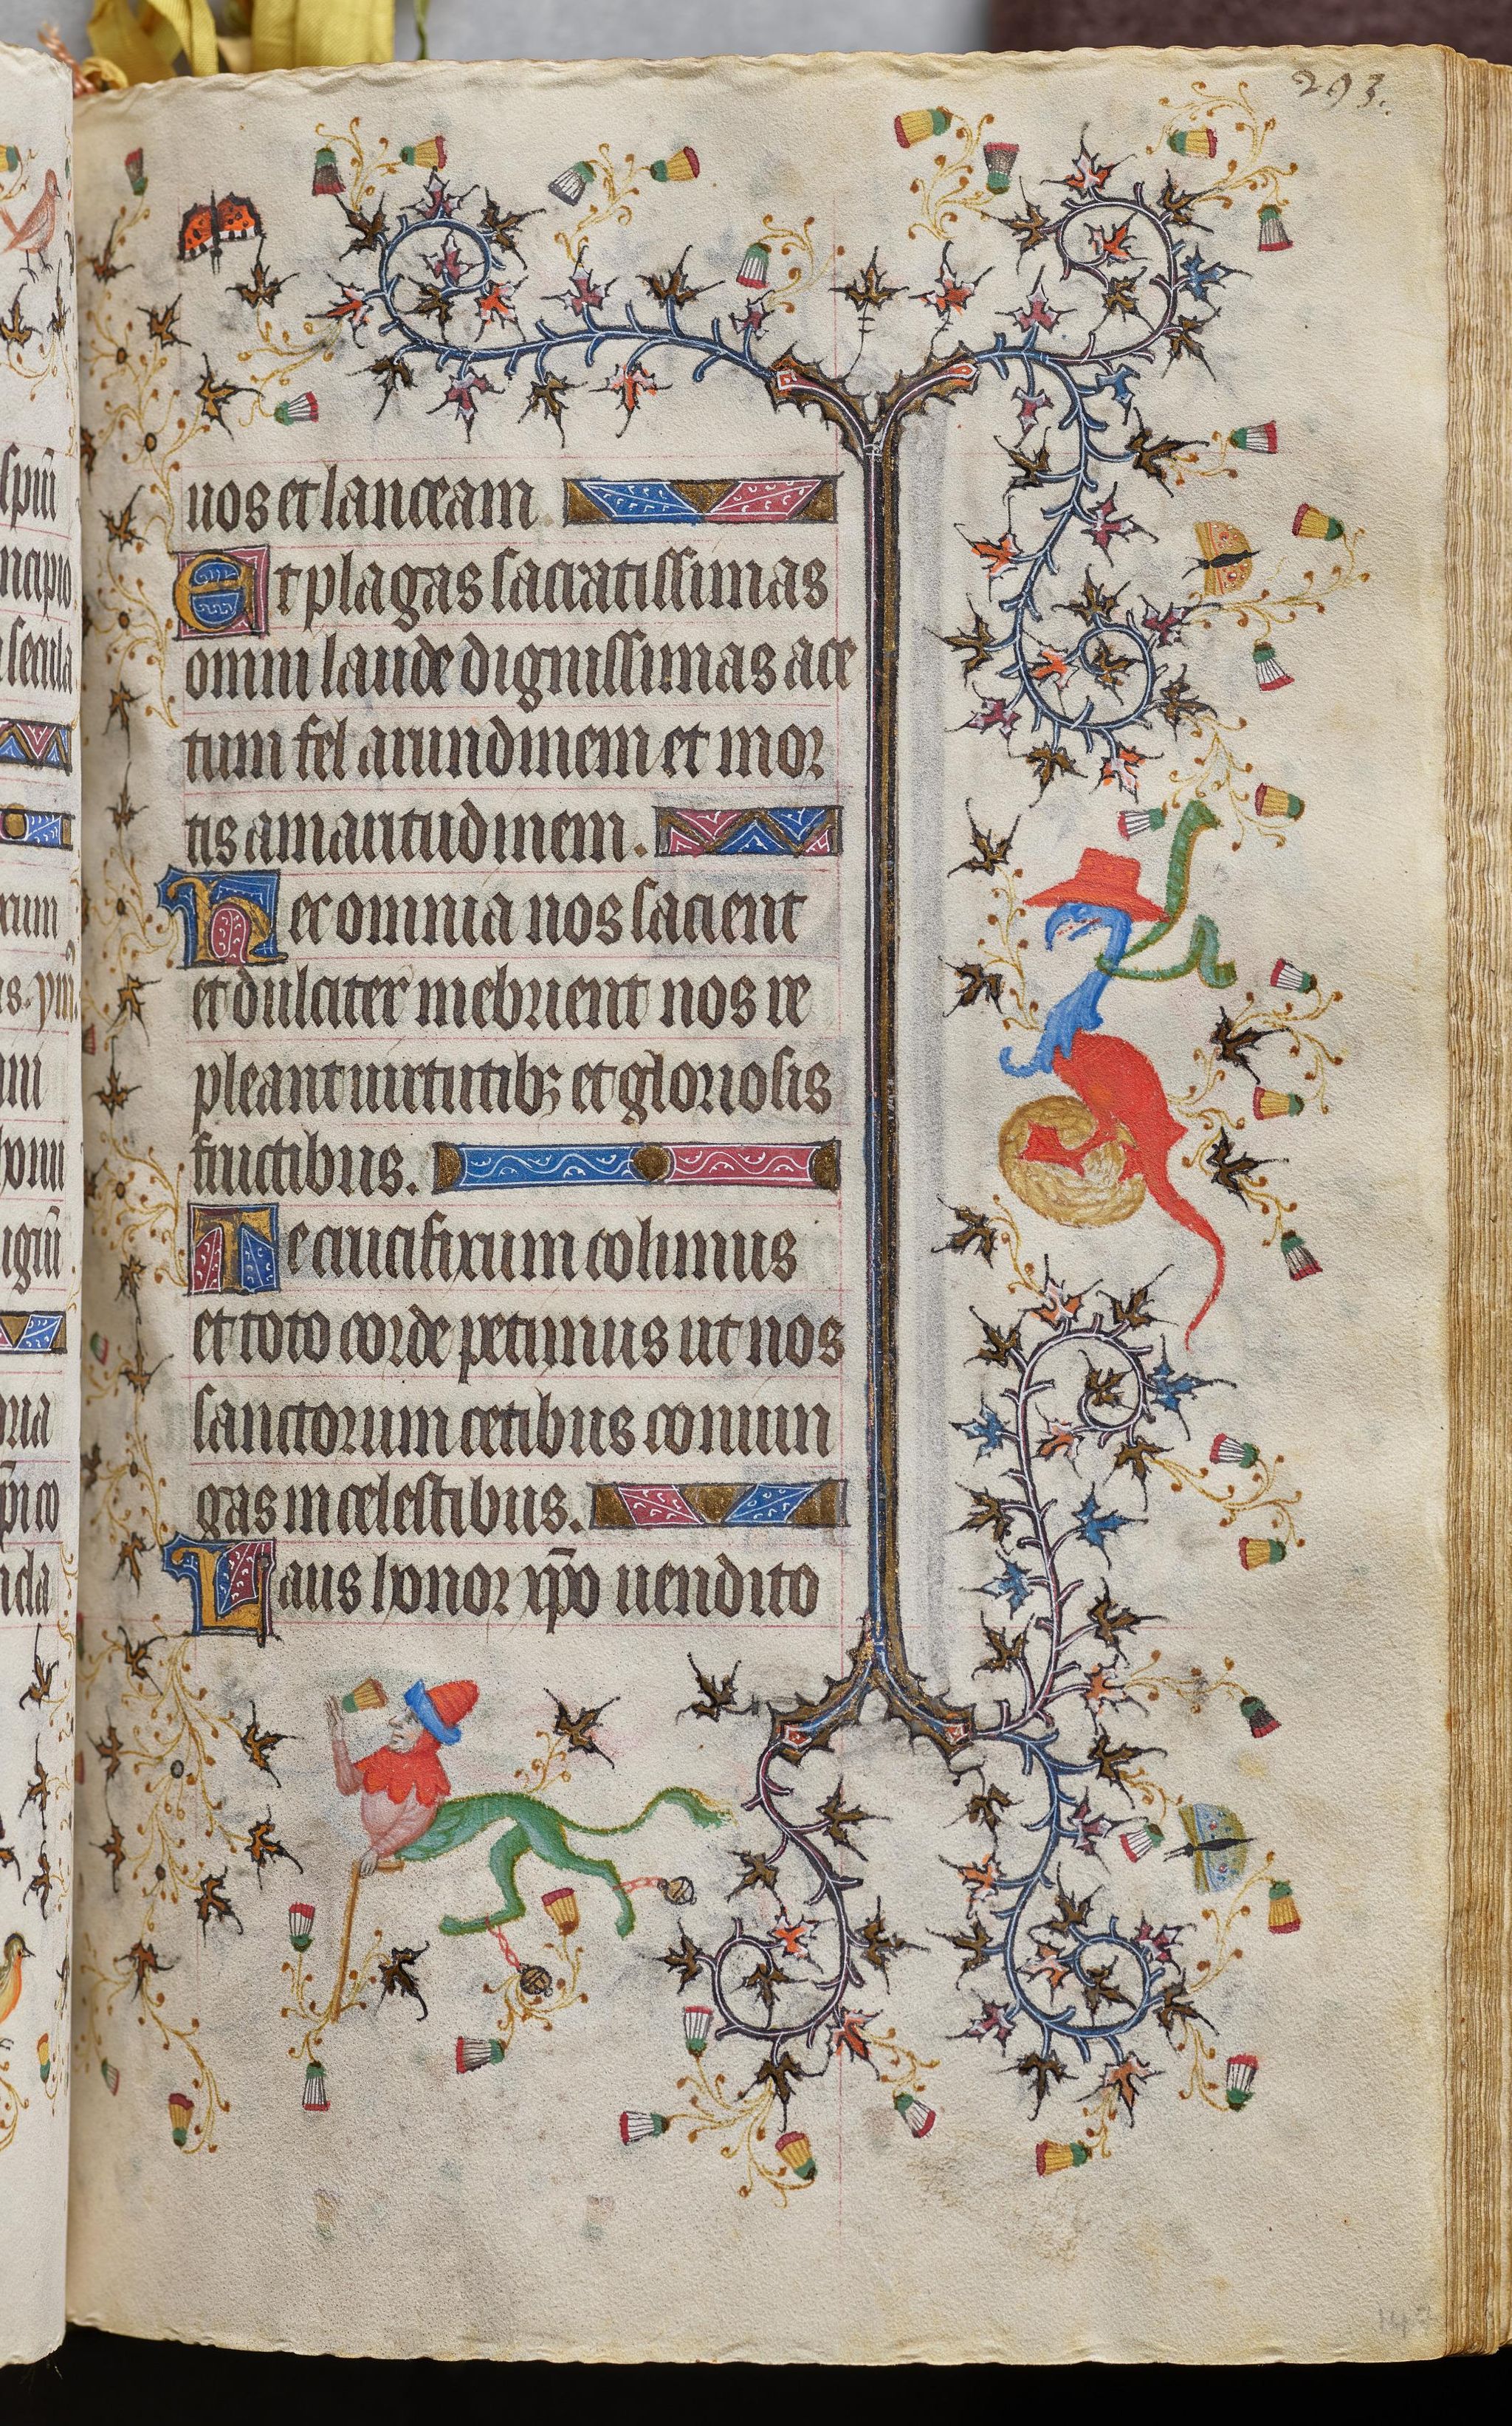 293.
uos et lanceam
Et plagas sacratissimas
omni laude dignissimas ace
tum fel arundinem et mor
tis amaritudinem.
Hec omnia nos sacient
et dulciter inebrient nos re
pleant uirtutibꝫ et gloriosis
fructibus.
Te crucifixum colimus
et toto corde petimus ut nos
sanctorum cetibus coniun
gas in celestibus.
Laus honor xp̄o uendito